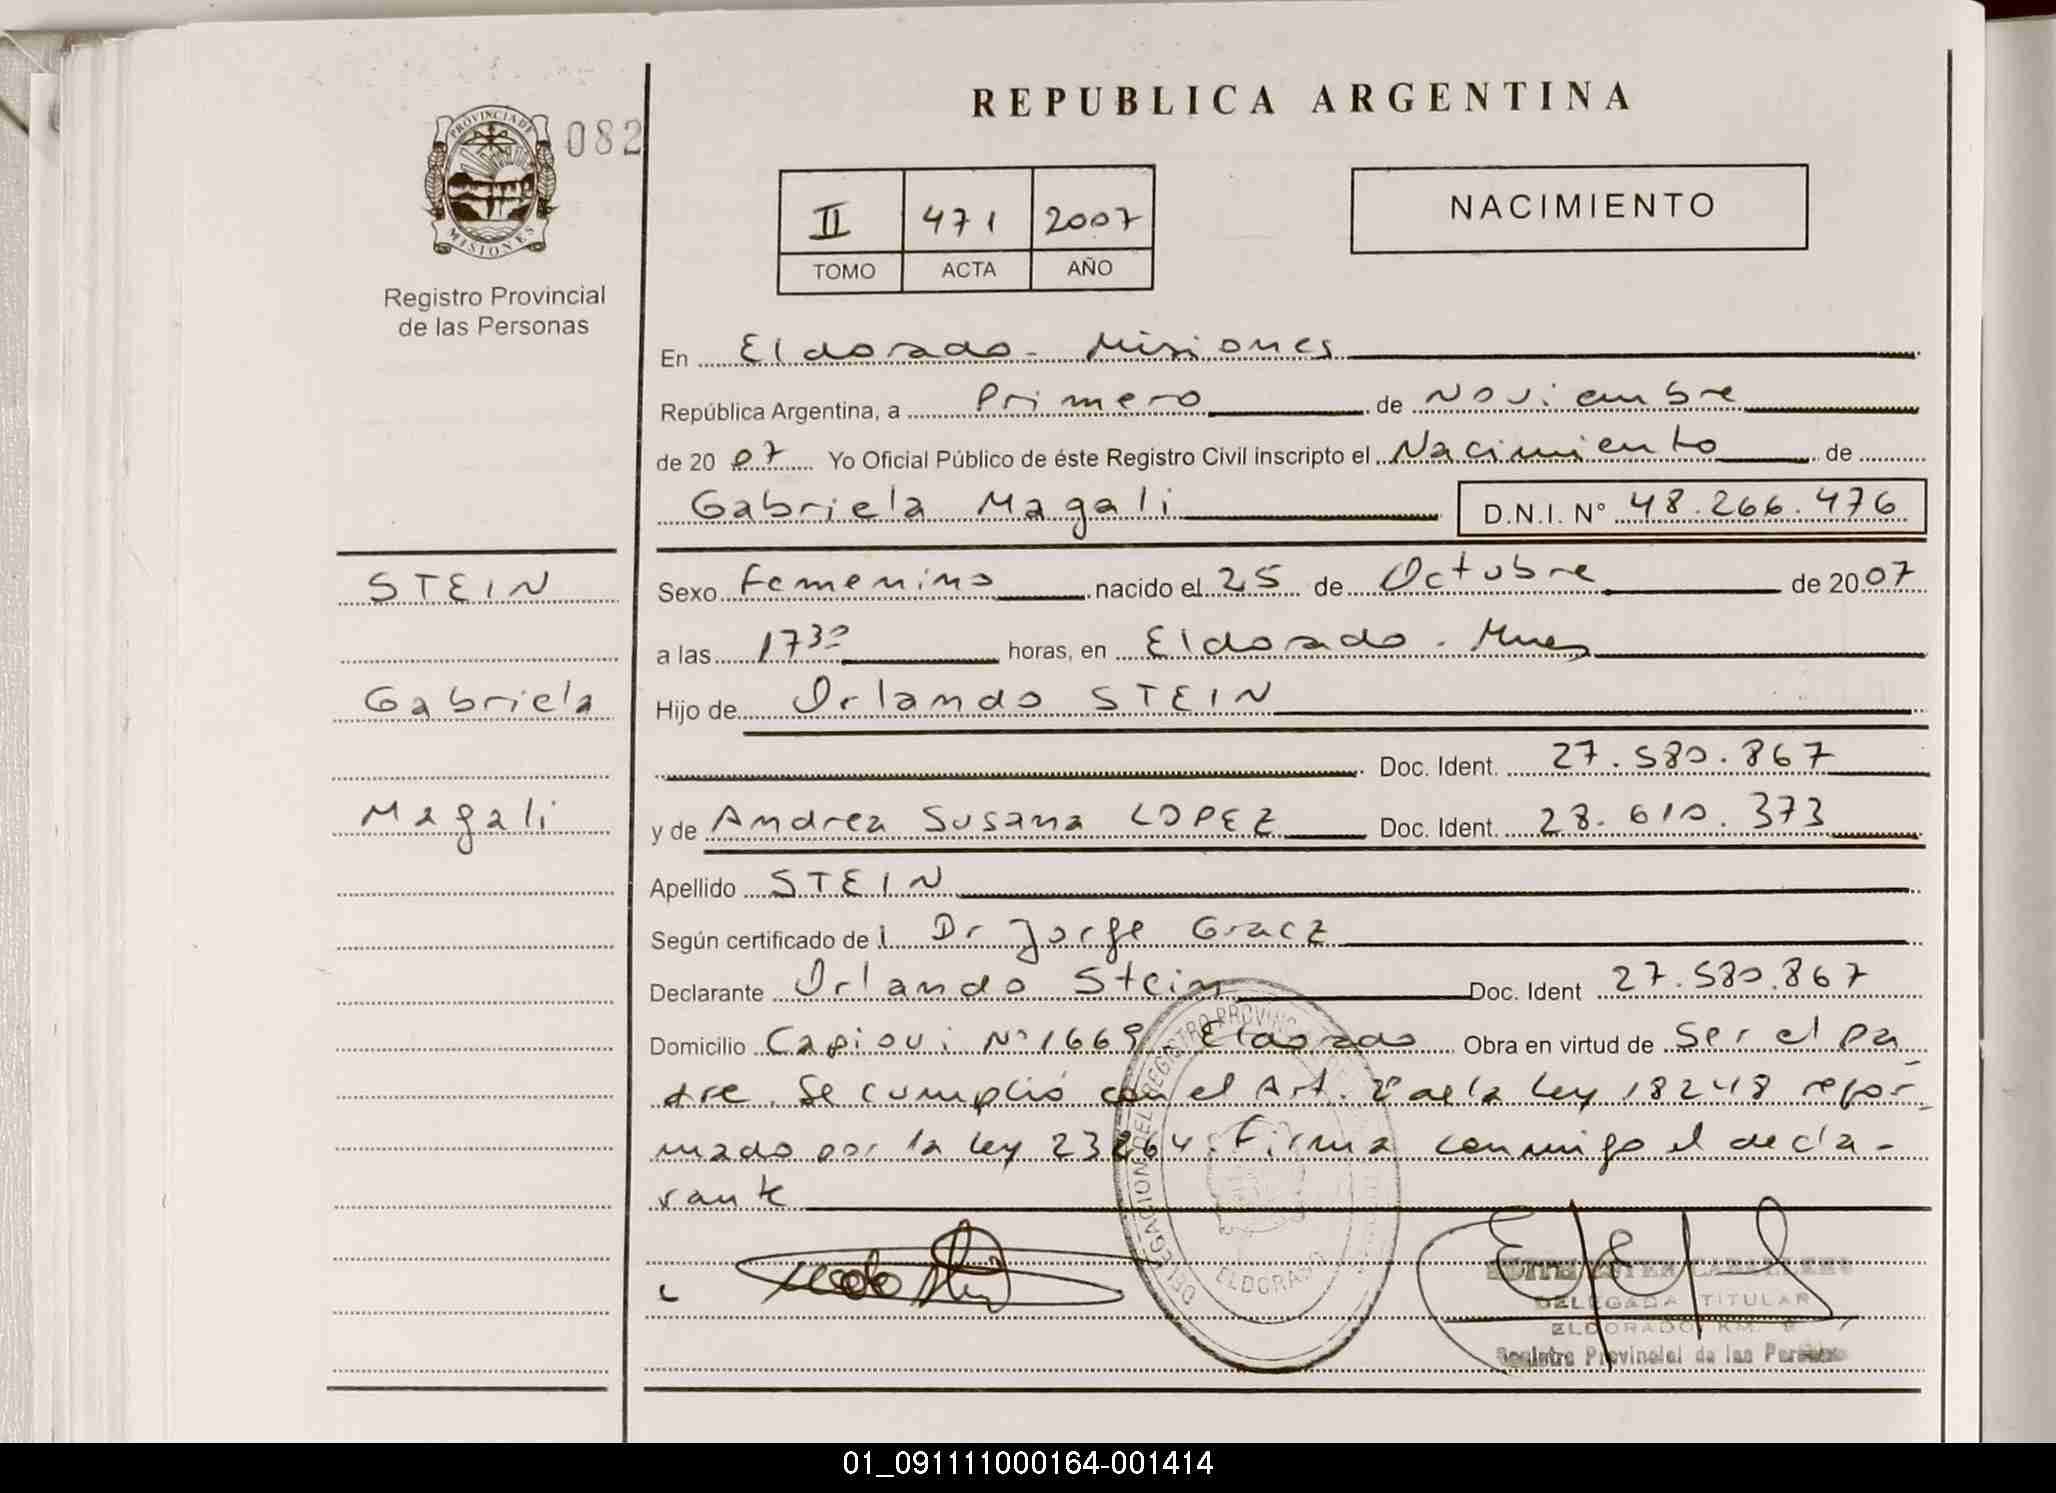 PROVINCIA DE
MISIONES
082
Registro Provincial
de las Personas
REPUBLICA ARGENTINA
II 471 2007
TOMO ACTA AÑO
NACIMIENTO
En Eldorado - Misiones
República Argentina, a Primero de Noviembre
de 20 07 Yo Oficial Público de éste Registro Civil inscripto el Nacimiento de
Gabriela Magali D.N.I. N° 48.266.476
STEIN
Gabriela
Magali
Sexo Femenino nacido el 25 de Octubre de 2007
a las 17³⁰ horas, en Eldorado - Mnes
Hijo de Orlando STEIN
Doc. Ident. 27.580.867
y de Andrea Susana LOPEZ Doc. Ident. 28.610.373
Apellido STEIN
Según certificado de Dr Jorge Gracz
Declarante Orlando Stein Doc. Ident 27.580.867
Domicilio Capiovi N° 1669 Eldorado Obra en virtud de Ser el pa
dre. Se cumplió con el Art. 2° de la Ley 18248 refor-
mado por la Ley 23264. Firma conmigo el decla-
rante
DELEGACION DEL REGISTRO PROVINCIAL
ELDORADO
CABALLERO
DELEGADA TITULAR
ELDORADO KM. 9
Registro Provincial de las Personas
01_091111000164-001414